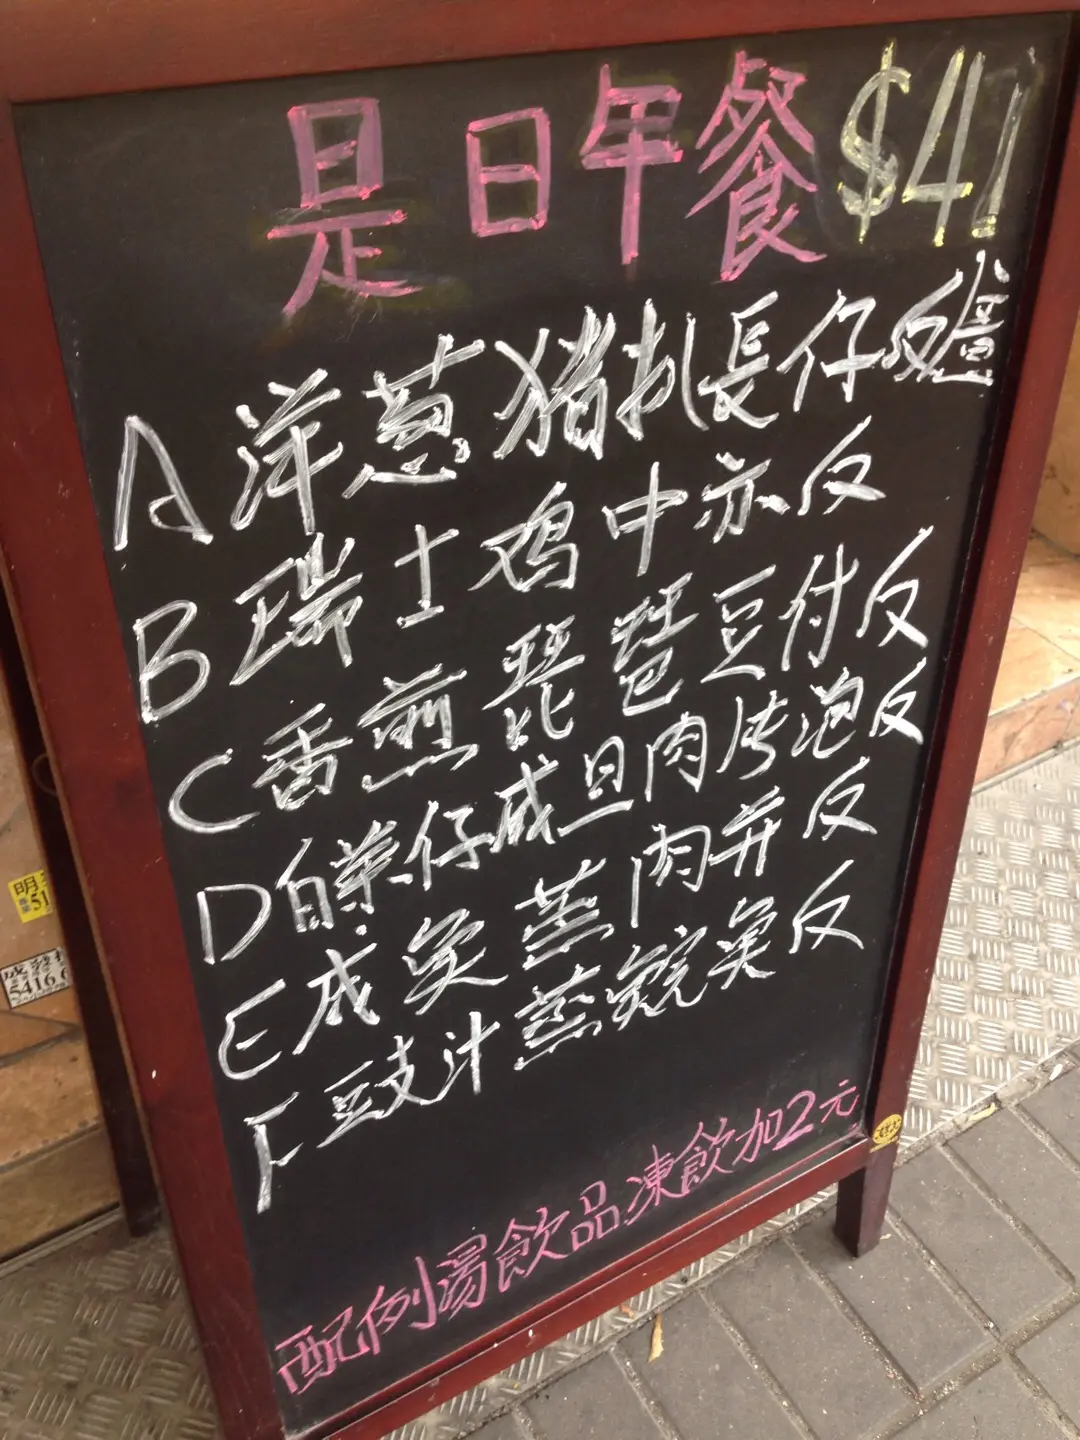 是日午餐 $41
A 洋葱猪扒長仔反
B 瑞士鸡中亦反
C 香煎琵琶豆付反
D 仔咸旦肉片泡反
E 咸魚蒸肉并反
F 豆支汁蒸鯇魚反
配例湯飲品凍飲加2元
明